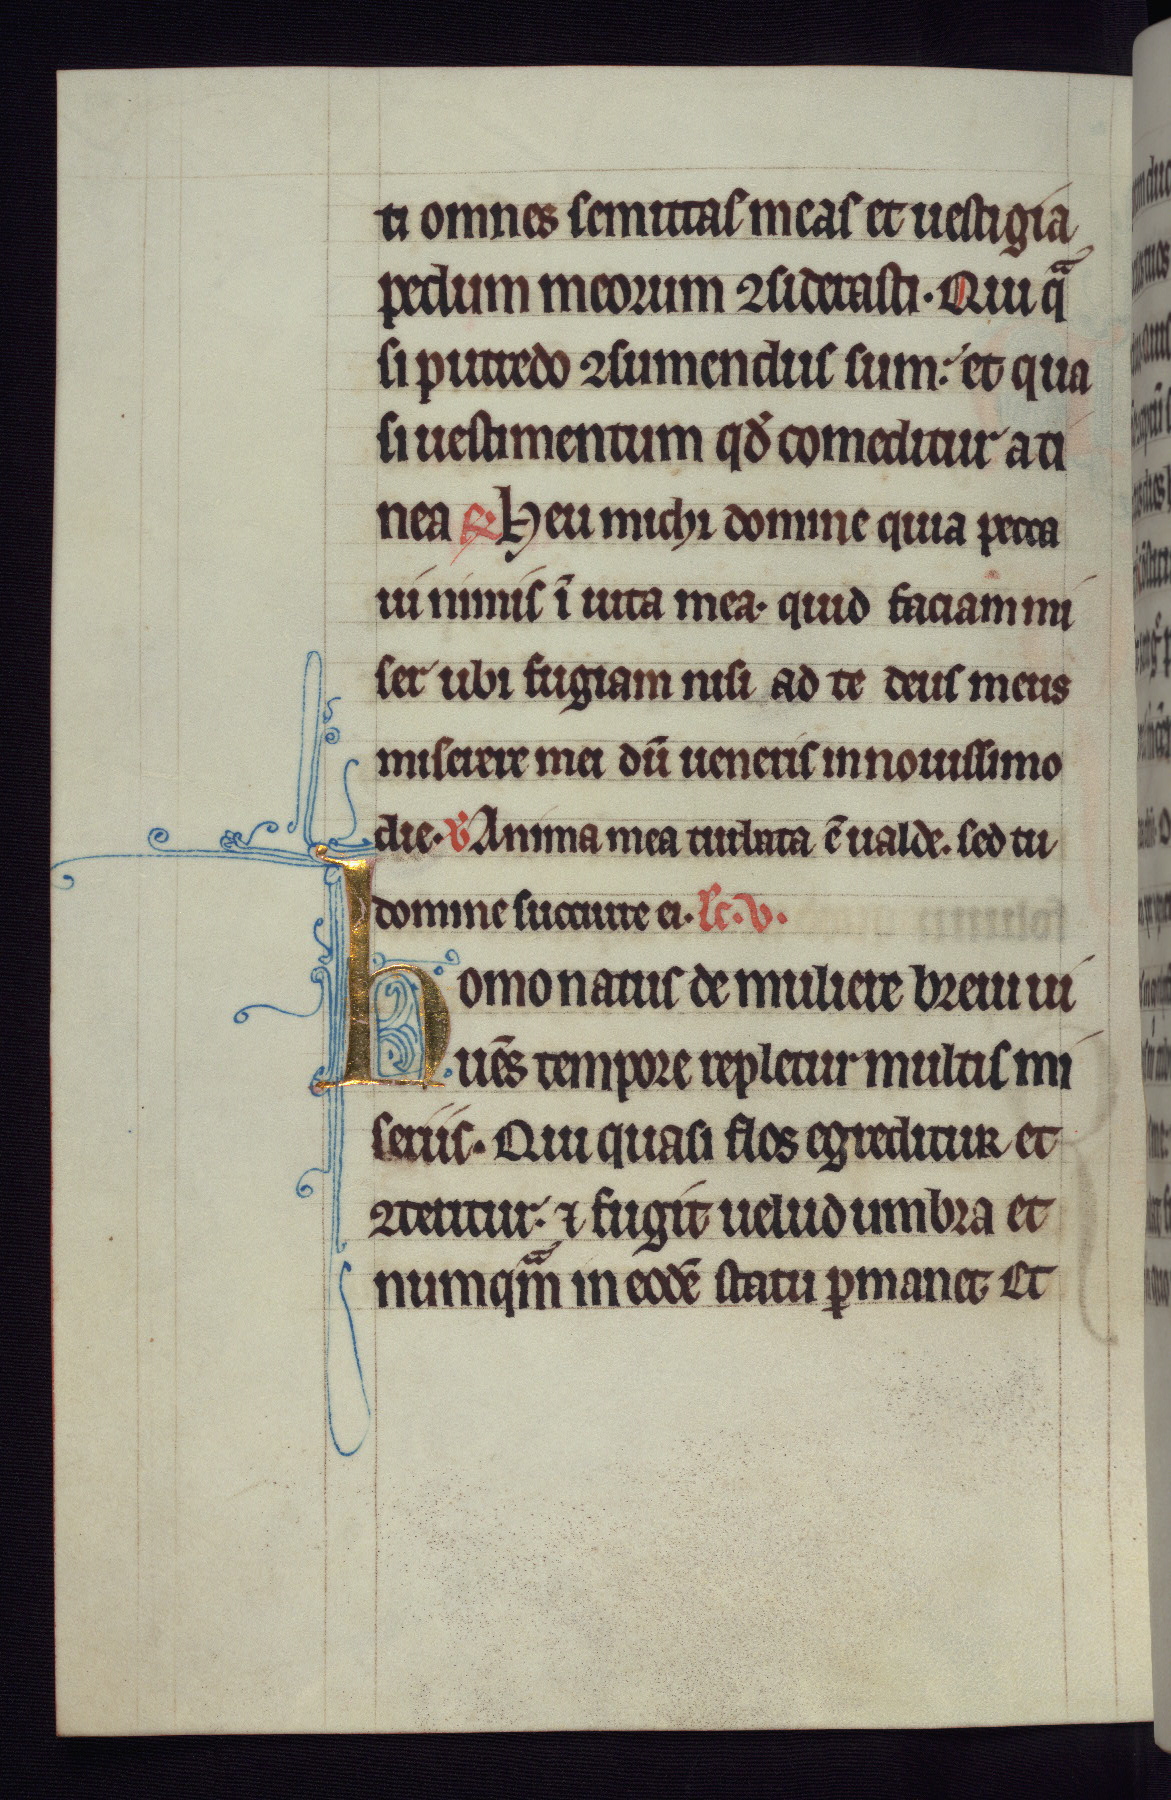 ti omnes semittas meas et uestigia
pedum meorum ꝯsiderasti. Qui qͣ
si puttredo ꝯsumendus sum: et qua
si uestimentum qđ comeditur a ti
nea ℟ Heu michi domine quia pecca
ui nimis ī uita mea. quid faciam mi
ser ubi fugiam nisi ad te deus meus
miserere mei dū ueneris in nouissimo
die. ℣ Anima mea turbata ē ualde. sed tu
domine succurre ei. lc. v.
homo natus de muliere breui ui
uēs tempore repletur multis mi
seriis. Qui quasi flos egreditur et
ꝯteritur: ⁊ fugit uelud umbra et
numqͣm in eodē statu ꝑmanet Et